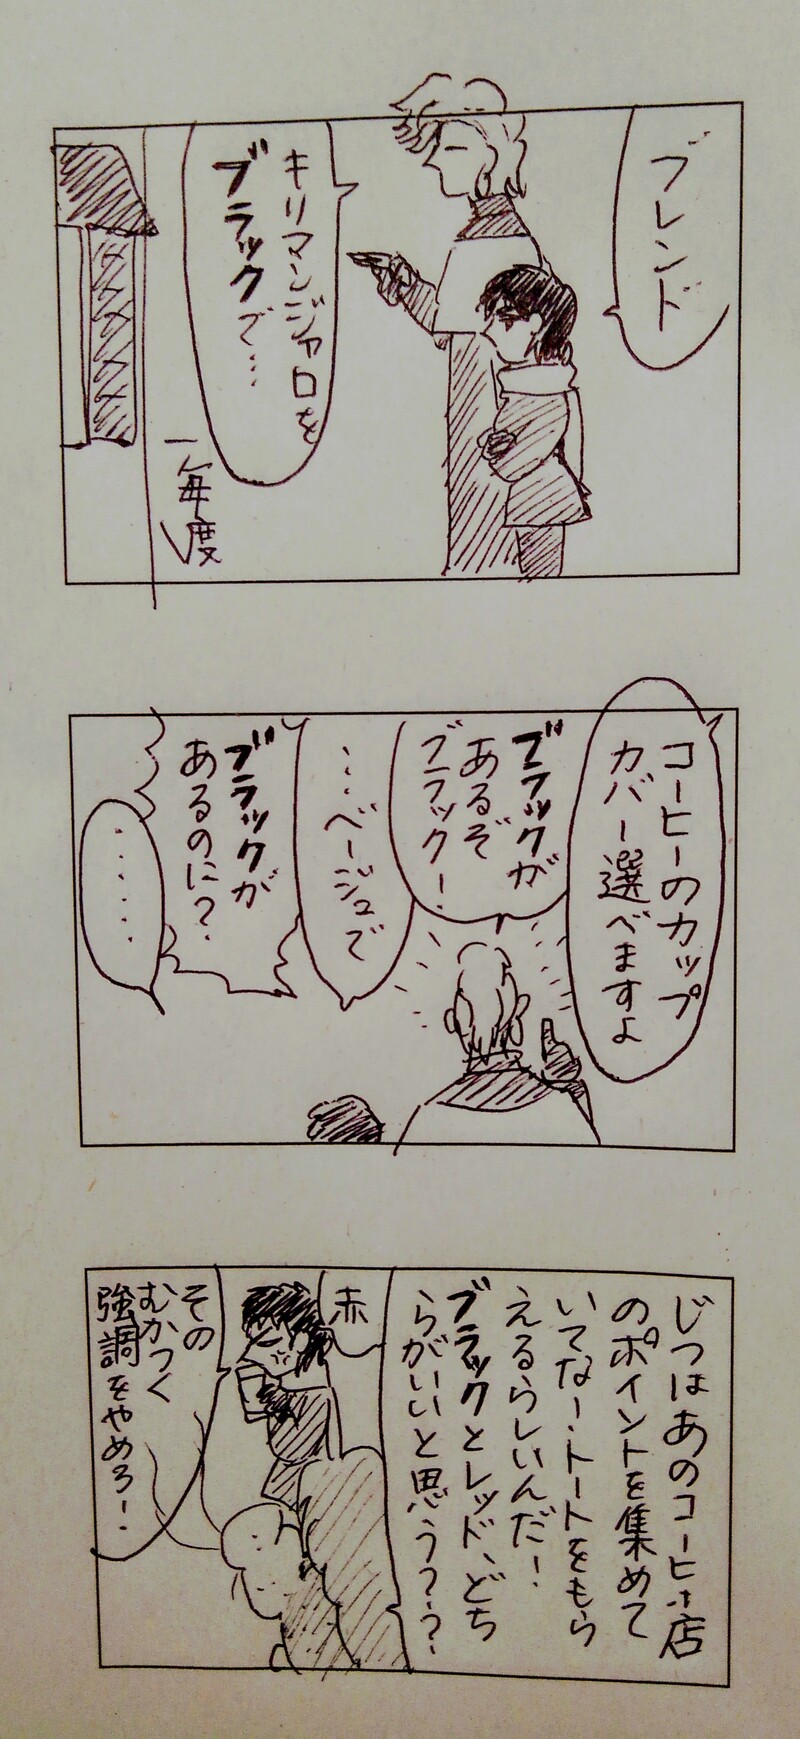 ブレンド
キリマンジャロを
ブラックで…
毎度
コーヒーのカップ
カバー選べますよ
ブラックが
あるぞ
ブラック！
…ベージュで
ブラックが
あるのに？
……
じつはあのコーヒー店
のポイントを集めて
いてな！トートをもら
えるらしいんだ！
ブラックとレッド、どち
らがいいと思う？？
赤
その
むかつく
強調をやめろ！